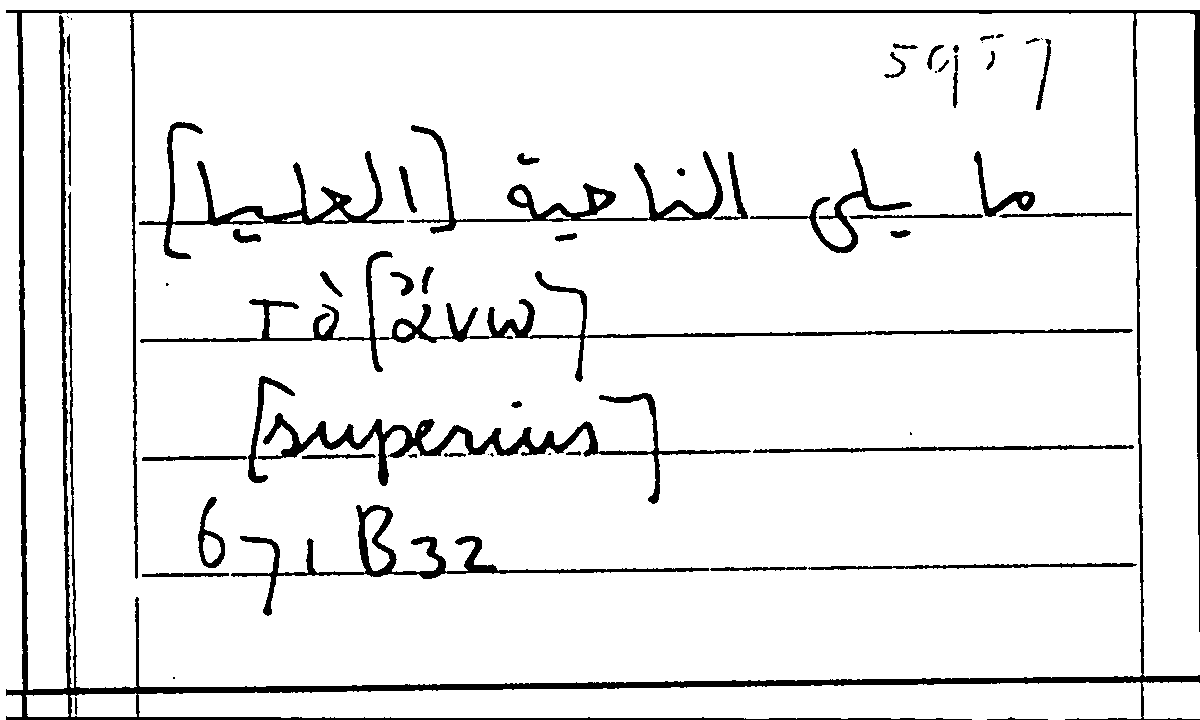 ما يلى الناحية [العليا]
τὸ [ἄνω]
[superius]
671 B32